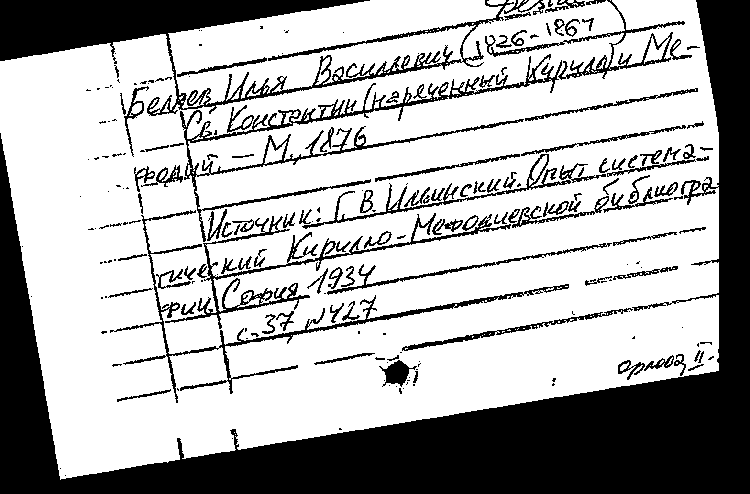 1826-1867
Беляев, Илья Василиевич
Св. Константин (нареченный Кирилла) и Ме-
фодий. – М., 1876
Источник: Г. В. Ильинский. Опыт система-
тический Кирилло-Мефодиевской библиогра-
фии. София, 1934
с. 37, №427
орлова, II.